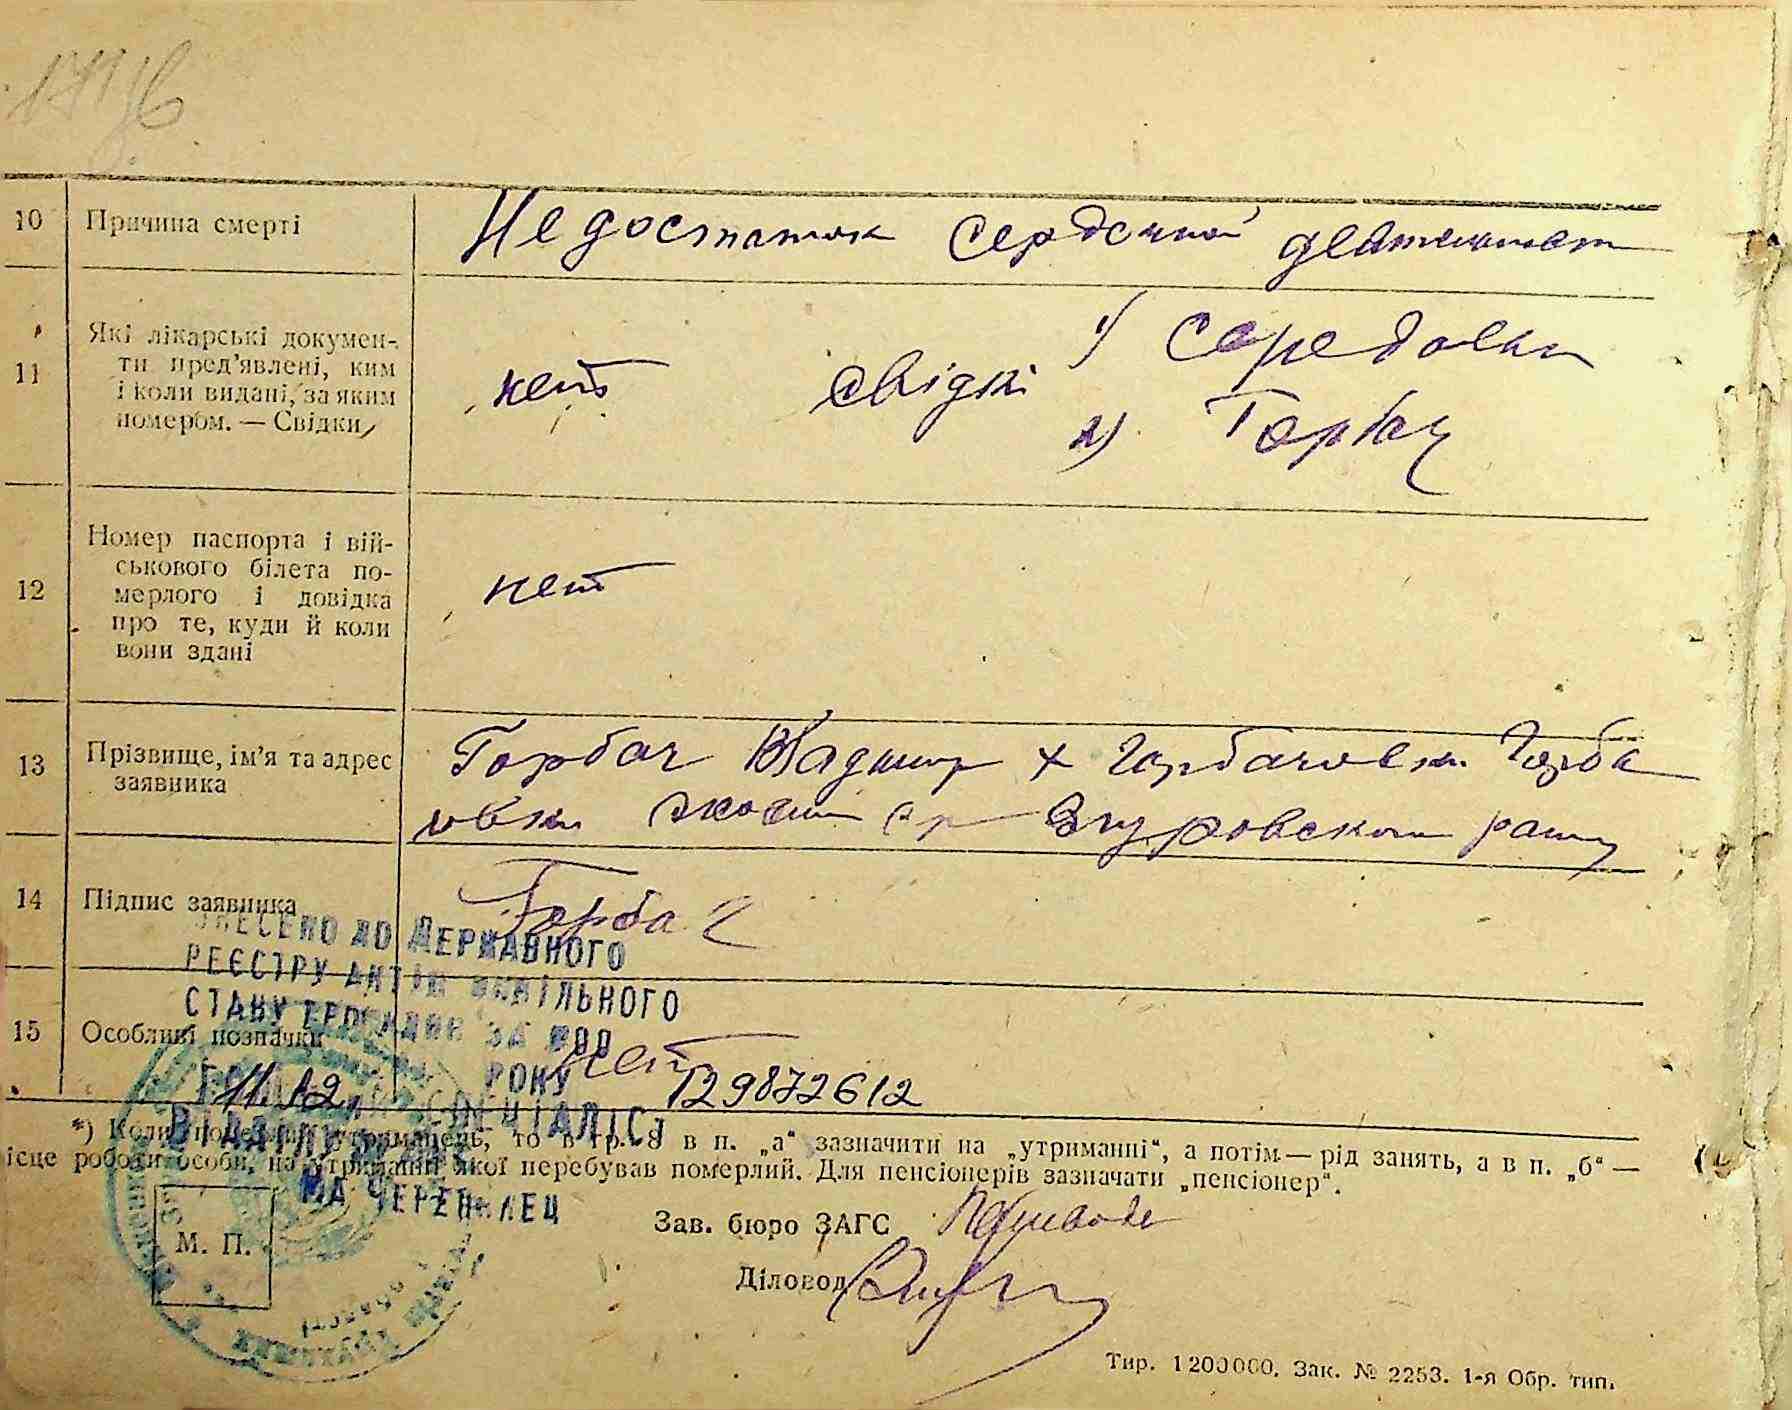 10 Причина смерті Недостаток сердечной деятельност
11 Які лікарські докумен-
ти пред'явлені, ким
і коли видані, за яким
номером. — Свідки
нет свідкі 1)
2) Горбач
12 Номер паспорта і вій-
ськового білета по-
мерлого і довідка
про те, куди й коли
вони здані
нет
13 Прізвище, ім'я та адрес
заявника
Горбач Владимир х
Згуровском
14 Підпис заявника Горбач
ВНЕСЕНО ДО ДЕРЖАВНОГО
РЕЄСТРУ АКТІВ ЦИВІЛЬНОГО
СТАНУ ГРОМАДЯН ЗА №00
15 Особливі позначки нет
11.12. РОКУ 129872612
СПЕЦІАЛІСТ
*) Коли утриманець, то в гр. 8 в п. „а“ зазначити на „утриманні“, а потім — рід занять, а в п. „б“ —
ісце роботи особи, на утриманні якої перебував померлий. Для пенсіонерів зазначати „пенсіонер“.
М. П.
Зав. бюро ЗАГС
Діловод
Тир. 1200000. Зак. № 2253. 1-я Обр. тип.